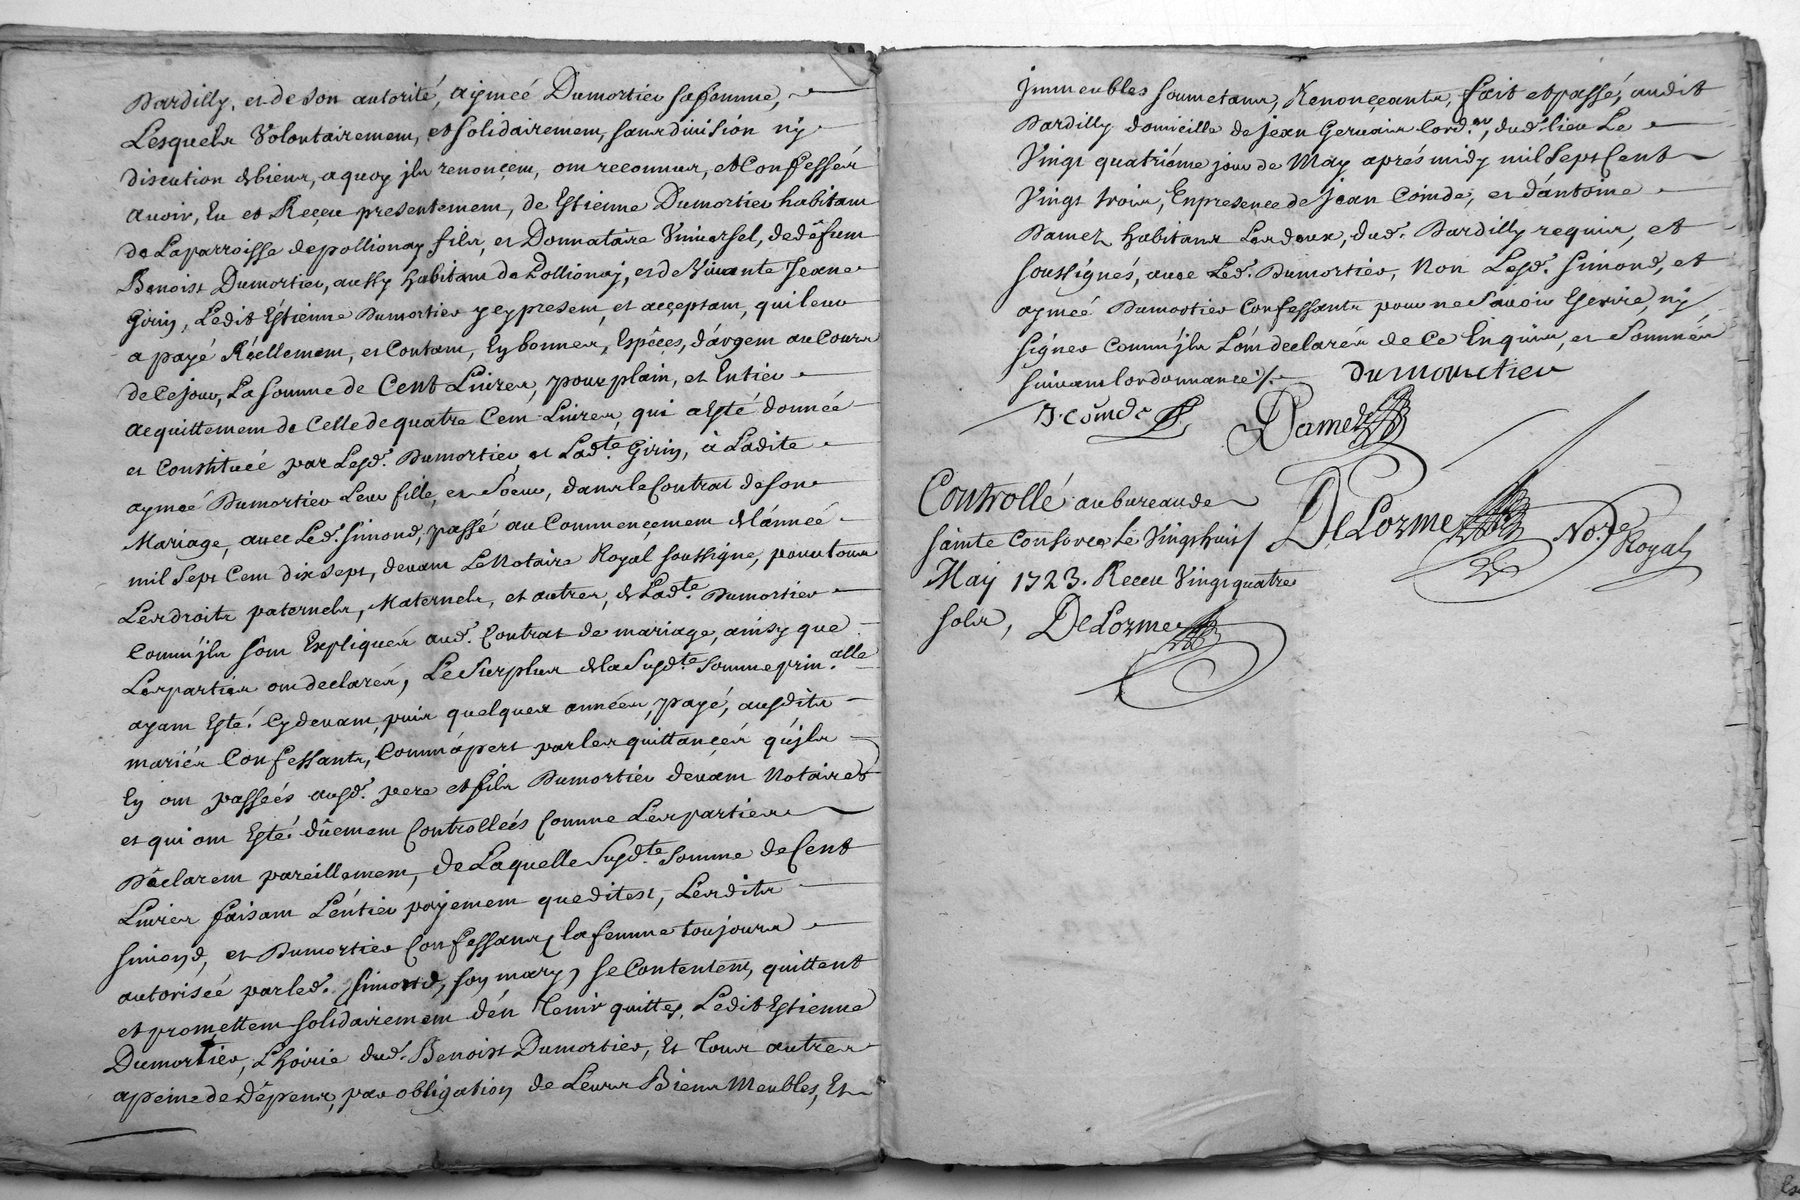 Dardilly, et de son autorité, aymeé Dumortier sa femme,
Lesquels Volontairement, et solidairement, sans division ny
discution de biens, a quoy jls renonçent, ont reconnus, et Confessés
avoir, Eu et Reçeu presentement, de Estienne Dumortier habitant
de La parroisse de pollionay fils, et Donnataire Vniversel, de défunt
Benoist Dumortier, aussy habitant de Pollionaj, et de Vivante Jeane
Girin, Ledit Estienne Dumortier yey present, et acçeptant, qui leur
a payé Réellement, et Contant, En bonnes, Espéçes, d'argent au Cours
de Ce jour, La somme de Cent Livres, pour plain, et Entier
acquittement de Celle de quatre Cent Livres, qui a Esté donnée
et Constituée par Lesd. Dumortier et Ladte. Girin, à Ladite
aymeé Dumortier Leur fille, et Soeur, dans le Contrat de son
Mariage, avec Led. Simond, passé au Commençement de L'année
mil Sept Cent dix sept, devant Le Notaire Royal soussigne, pour tous
Les droits paternels, Maternels, et autres, de Ladte. Dumortier
Comm'jls sont Expliqués aud. Contrat de mariage, ainsy que
Les parties ont declarés, Le Surplus de la Susdte. somme prin.alle
ayant Esté Cy devant, puis quelques années, payé, ausdits
mariés Confessants, Comm'apert par les quittançes qu'jls
En ont passées ausd. pere et fils Dumortier devant Notaires
et qui ont Esté dûement Controllées Comme Les parties
Déclarent pareillement, de Laquelle Susdte. Somme de Cent
Livres faisant L'entier payement que dit est, Lesdits
Simond, et Dumortier Confessants, la femme toujours
autorisée par led. Simond, son mary, se Contentent, quittent
et promettent solidairement d'en Tenir quittes, Ledit Estienne
Dumortier, L'hoirie dud. Benoist Dumortier, Et Tous autres
a peine de Dépens, par obligation de Leurs Biens Meubles, Et
Jmmeubles soumetans, Renonçeants, fait et passé, audit
Dardilly domicille de Jean Gervais Cord.er, dud. lieu Le
Vingt quatriéme jour de May aprés midy mil Sept Cent
Vingt trois, En presençe de Jean Coinde, et d'antoine
Damez habitans Les deux, dud. Dardilly requis, et
soussignés, avec Led. Dumortier, Non Lesd. Simond, et
aymeé Dumortier Confessants pour ne Savoir Escrire, ny
Signer Comm'jls L'ont declarés de Ce Enquis, et Sommés
suivant l'ordonnançe /.
Dumourtier
J. Coindе
Damez
DeLorme No.re Royal
Controllé au bureau de
sainte Consorce Le Vingt huit
Maij 1723. Reçeu Vingt quatre
sols, DeLorme